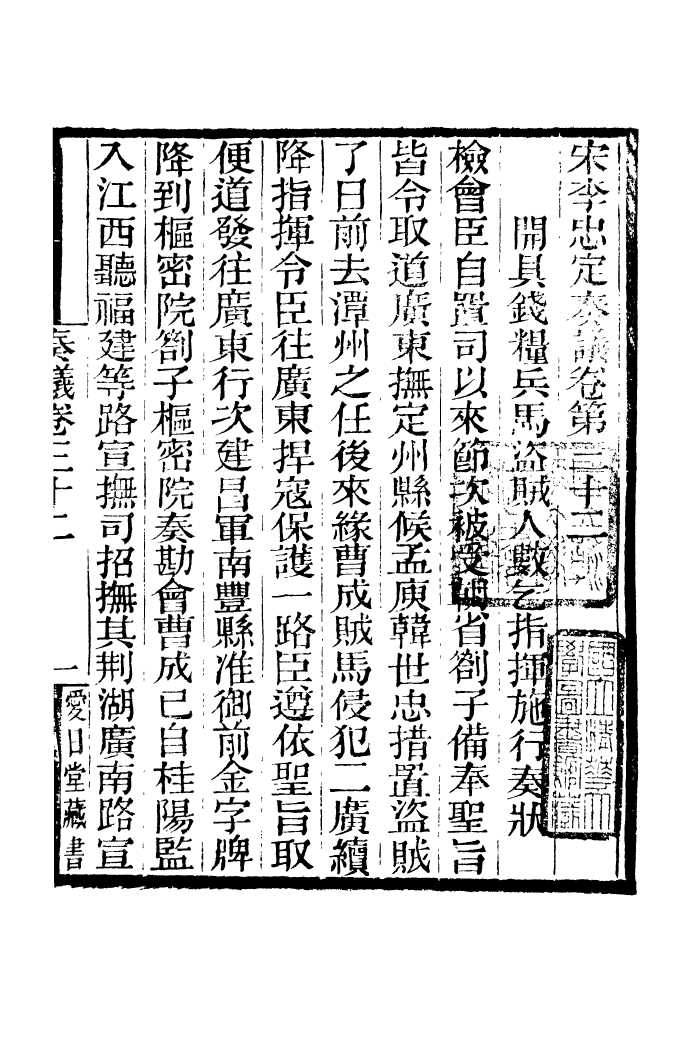 宋李忠定奏議卷第三十二
開具錢糧兵馬盜賊人數乞指揮施行奏狀
檢會臣自置司以來節次被受朝省劄子備奉聖旨
皆令取道廣東撫定州縣候孟庾韓世忠措置盜賊
了日前去潭州之任後來緣曹成賊馬侵犯二廣續
降指揮令臣往廣東捍寇保護一路臣遵依聖旨取
便道發往廣東行次建昌軍南豐縣准御前金字牌
降到樞密院劄子樞密院奏勘會曹成已自桂陽監
入江西聽福建等路宣撫司招撫其荆湖廣南路宣
奏議卷三十二
一
愛日堂藏書